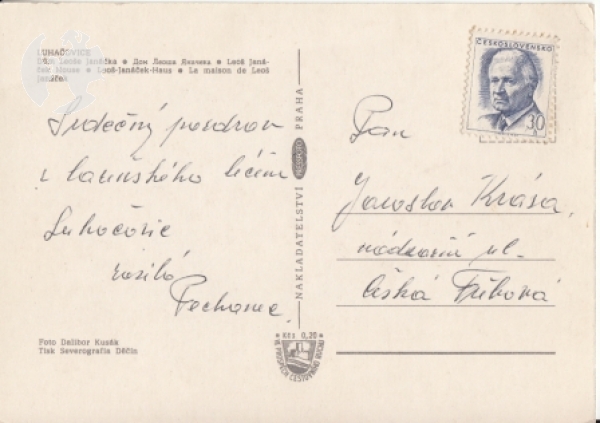 LUHAČOVICE
Dům Leoše Janáčka • Дом Леоша Яначека • Leoš Janá-
ček House • Leoš-Janáček-Haus • La maison de Leoš
Janáček
Srdečný pozdrav
z lázeňského léčení
Luhačovic
zasílá
Pechanec
Foto Dalibor Kusák
Tisk Severografia Děčín
NAKLADATELSTVÍ PRESSFOTO PRAHA
Kčs 0,20
VE PROSPĚCH CESTOVNÍHO RUCHU
ČESKOSLOVENSKO
30
Pan
Jaroslav Krása,
nádražní ul.
Česká Třebová